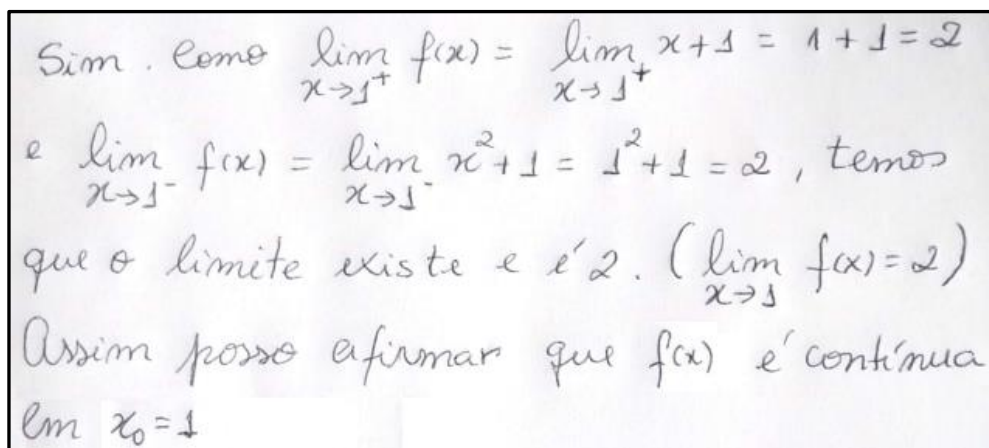 Sim. Como lim x→1⁺ f(x) = lim x→1⁺ x+1 = 1+1 = 2
e lim x→1⁻ f(x) = lim x→1⁻ x²+1 = 1²+1 = 2, temos
que o limite existe e é 2. (lim x→1 f(x) = 2)
Assim posso afirmar que f(x) é contínua
em x₀ = 1